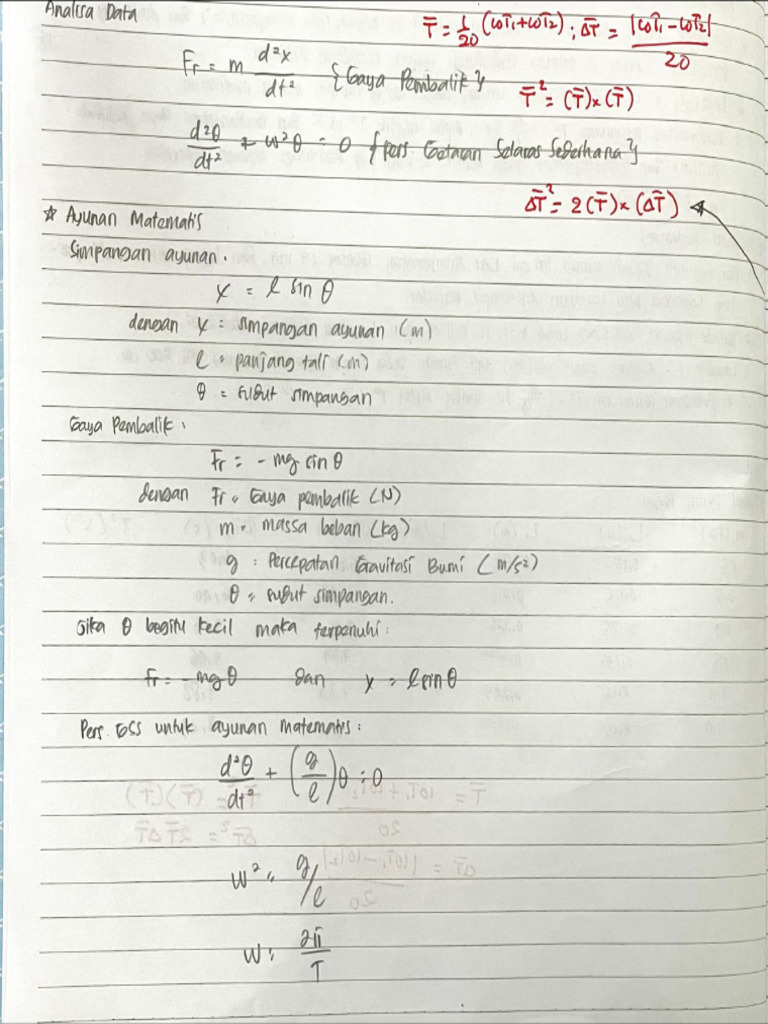 Analisa Data
T̄ = 1/20 (10T1 + 10T2) ; ΔT̄ = |10T1 - 10T2| / 20
Fr = m d²x/dt² { Gaya Pembalik }
T̄² = (T̄) × (T̄)
d²θ/dt² + w²θ = 0 { Pers. Getaran Selaras Sederhana }
ΔT̄² = 2 (T̄) × (ΔT̄)
* Ayunan Matematis
Simpangan ayunan.
x = l sin θ
dengan x = simpangan ayunan (m)
l = panjang tali (m)
θ = sudut simpangan
Gaya Pembalik :
Fr = - mg sin θ
dengan Fr = Gaya pembalik (N)
m = massa beban (kg)
g = Percepatan Gravitasi Bumi (m/s²)
θ = sudut simpangan.
Jika θ begitu kecil maka terpenuhi :
Fr = - mg θ dan x = l sin θ
Pers. GSS untuk ayunan matematis :
d²θ/dt² + (g/l) θ = 0
w² = g/l
w = 2π/T